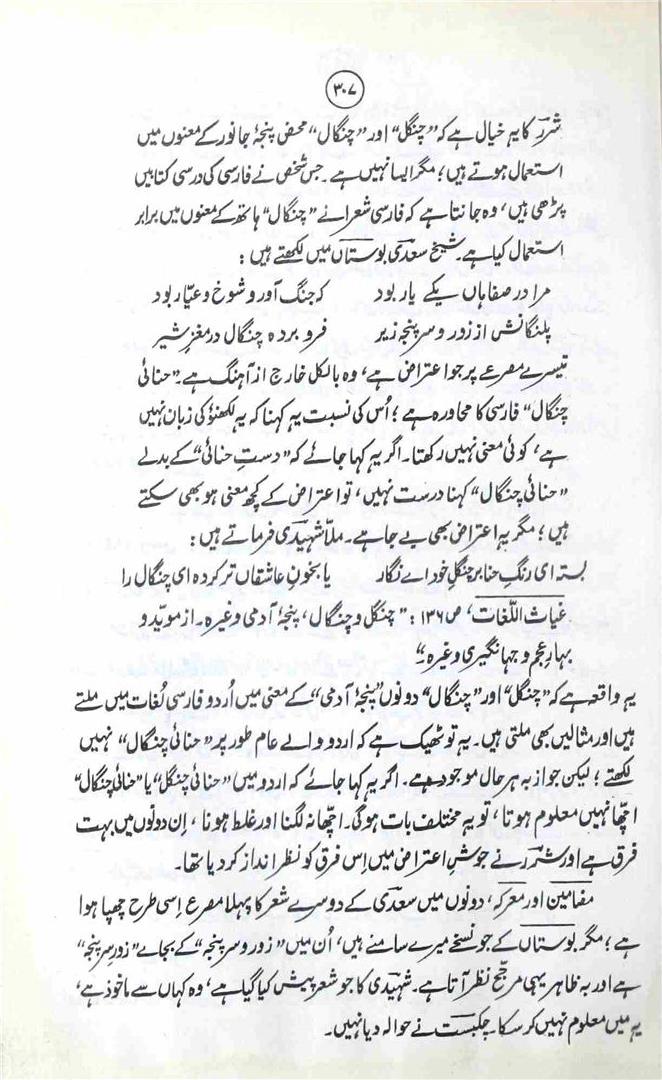 ۳۰۷
شررؔ کا یہ خیال ہے کہ "چنگل" اور "چنگال" محض پنجۂ جانور کے معنوں میں
استعمال ہوتے ہیں؛ مگر ایسا نہیں ہے۔ جس شخص نے فارسی کی درسی کتابیں
پڑھی ہیں، وہ جانتا ہے کہ فارسی شعرا نے "چنگال" ہاتھ کے معنوں میں برابر
استعمال کیا ہے۔ شیخ سعدیؔ بوستاں میں لکھتے ہیں:
مرا در صفاہاں یکے یار بود کہ جنگ آور و شوخ و عیّار بود
پلنگانش از زور و سرپنجہ زیر فرو بردہ چنگال در مغزِ شیر
تیسرے مصرعے پر جو اعتراض ہے، وہ بالکل خارج از آہنگ ہے۔ "حنائی
چنگال" فارسی کا محاورہ ہے؛ اُس کی نسبت یہ کہنا کہ یہ لکھنؤ کی زبان نہیں
ہے، کوئی معنی نہیں رکھتا۔ اگر یہ کہا جائے کہ "دستِ حنائی" کے بدلے
"حنائی چنگال" کہنا درست نہیں، تو اعتراض کے کچھ معنی ہو بھی سکتے
ہیں؛ مگر یہ اعتراض بھی بے جا ہے۔ ملّا شہیدی فرماتے ہیں:
بستہ ای رنگِ حنا بر چنگلِ خود اے نگار یا بخونِ عاشقاں تر کردہ ای چنگال را
غیاث اللّغات، ص ۱۳۶: "چنگل و چنگال، پنجۂ آدمی وغیرہ۔ از موید و
بہارِ عجم و جہانگیری وغیرہ۔"
یہ واقعہ ہے کہ "چنگل" اور "چنگال" دونوں "پنجۂ آدمی" کے معنی میں اُردو فارسی لُغات میں ملتے
ہیں اور مثالیں بھی ملتی ہیں۔ یہ تو ٹھیک ہے کہ اردو والے عام طور پر "حنائی چنگال" نہیں
لکھتے؛ لیکن جواز بہ ہر حال موجود ہے۔ اگر یہ کہا جائے کہ اردو میں "حنائی چنگل" یا "حنائی چنگال"
اچھّا نہیں معلوم ہوتا، تو یہ مختلف بات ہوگی۔ اچھّا نہ لگنا اور غلط ہونا، اِن دونوں میں بہت
فرق ہے اور شررؔ نے جوشِ اعتراض میں اِس فرق کو نظر انداز کر دیا تھا۔
مضامین اور معرکہ، دونوں میں سعدیؔ کے دوسرے شعر کا پہلا مصرع اِسی طرح چھپا ہوا
ہے؛ مگر بوستاں کے جو نسخے میرے سامنے ہیں، اُن میں "زور و سرپنجہ" کے بجاے "زورِ سرپنجہ"
ہے اور بہ ظاہر یہی مرجّح نظر آتا ہے۔ شہیدیؔ کا جو شعر پیش کیا گیا ہے، وہ کہاں سے ماخوذ ہے،
یہ میں معلوم نہیں کر سکا۔ چکبستؔ نے حوالہ دیا نہیں۔